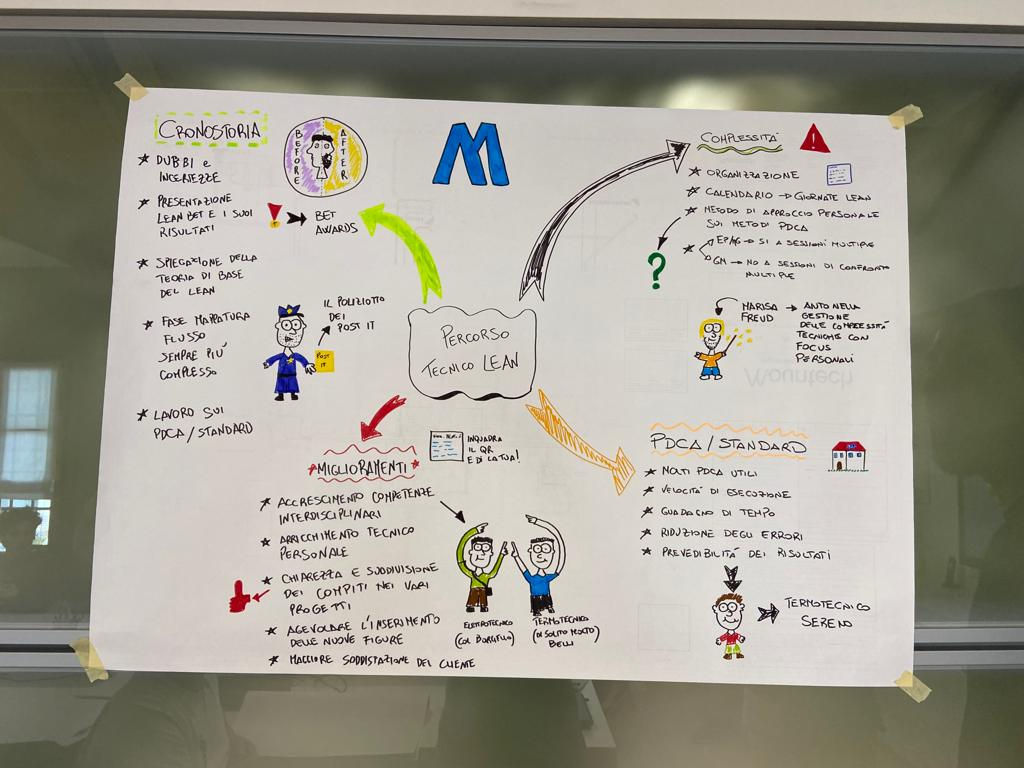 CRONOSTORIA
BEFORE
AFTER
DUBBI e
INCERTEZZE
PRESENTAZIONE
LEAN BET E I SUOI
RISULTATI
BET
AWARDS
SPIEGAZIONE DELLA
TEORIA DI BASE
DEL LEAN
FASE MAPPATURA
FLUSSO
SEMPRE PIU'
COMPLESSO
IL POLIZIOTTO
DEI
POST IT
POST
IT
LAVORO SUI
PDCA/STANDARD
M
PERCORSO
TECNICO LEAN
COMPLESSITÀ
!
ORGANIZZAZIONE
CALENDARIO → GIORNATE LEAN
METODO DI APPROCCIO PERSONALE
SUI METODI PDCA
?
EP/AG → SI A SESSIONI MULTIPLE
GM → NO A SESSIONI DI CONFRONTO
MULTIPLE
MARISA
FREUD
→ ANTONELLA
GESTIONE
DELLE COMPLESSITÀ
TECNICHE CON
FOCUS
PERSONALI
Mountech
MIGLIORAMENTI
INQUADRA
IL QR
E DI LA TUA!
ACCRESCIMENTO COMPETENZE
INTERDISCIPLINARI
ARRICCHIMENTO TECNICO
PERSONALE
CHIAREZZA E SUDDIVISIONE
DEI COMPITI NEI VARI
PROGETTI
AGEVOLARE L'INSERIMENTO
DELLE NUOVE FIGURE
MAGGIORE SODDISFAZIONE DEL CLIENTE
ELETTROTECNICO
(COL BORSELLO)
TERMOTECNICO
(DI SOLITO MOLTO
BELLI
PDCA/STANDARD
MOLTI PDCA UTILI
VELOCITÀ DI ESECUZIONE
GUADAGNO DI TEMPO
RIDUZIONE DEGLI ERRORI
PREVEDIBILITÀ DEI RISULTATI
TERMOTECNICO
SERENO